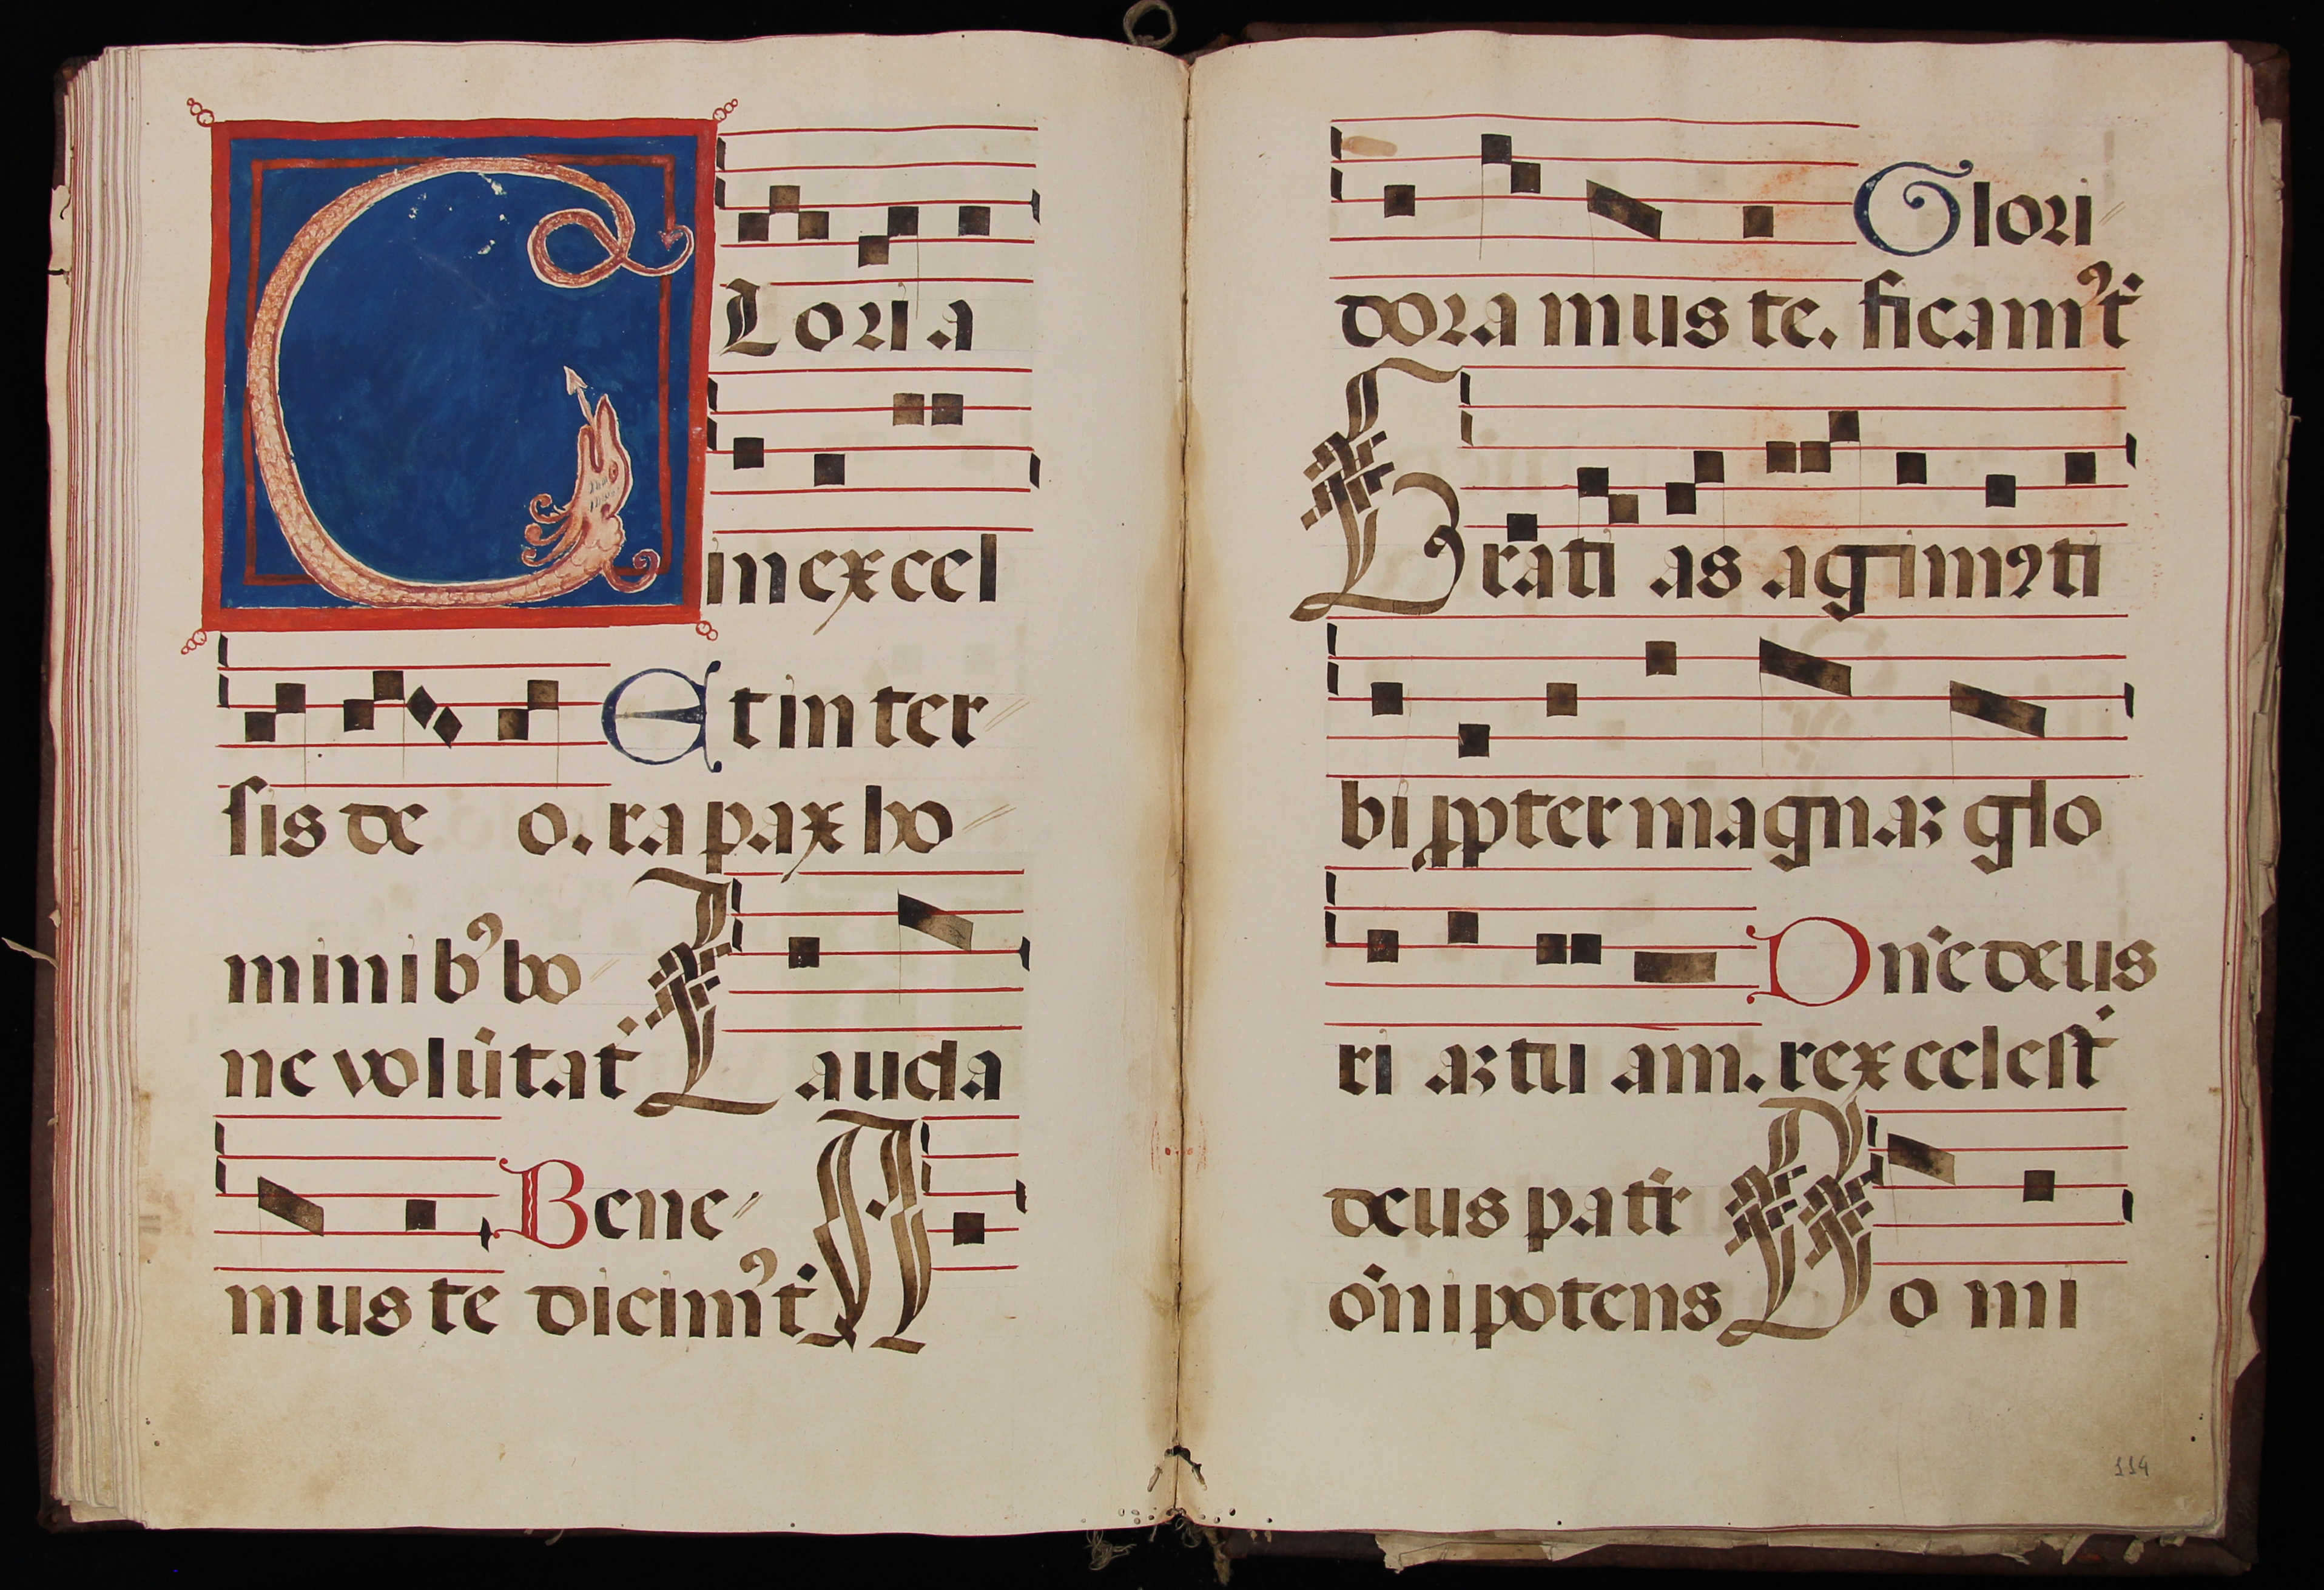 GLoria
in excel
Et in ter
ſis de o. ra pax ho
minib⁹ bo
ne volūtat̄ Lauda
Bene
mus te dicim⁹ t̄ A
Glori
dora mus te. ficam⁹ t̄
Grati as agimꝰ ti
bi ꝓpter magnaꝫ glo
Dn̄e deus
ri aꝫ tu am. rex celeſt̄
deus patr̄
ōnipotens Do mi
114